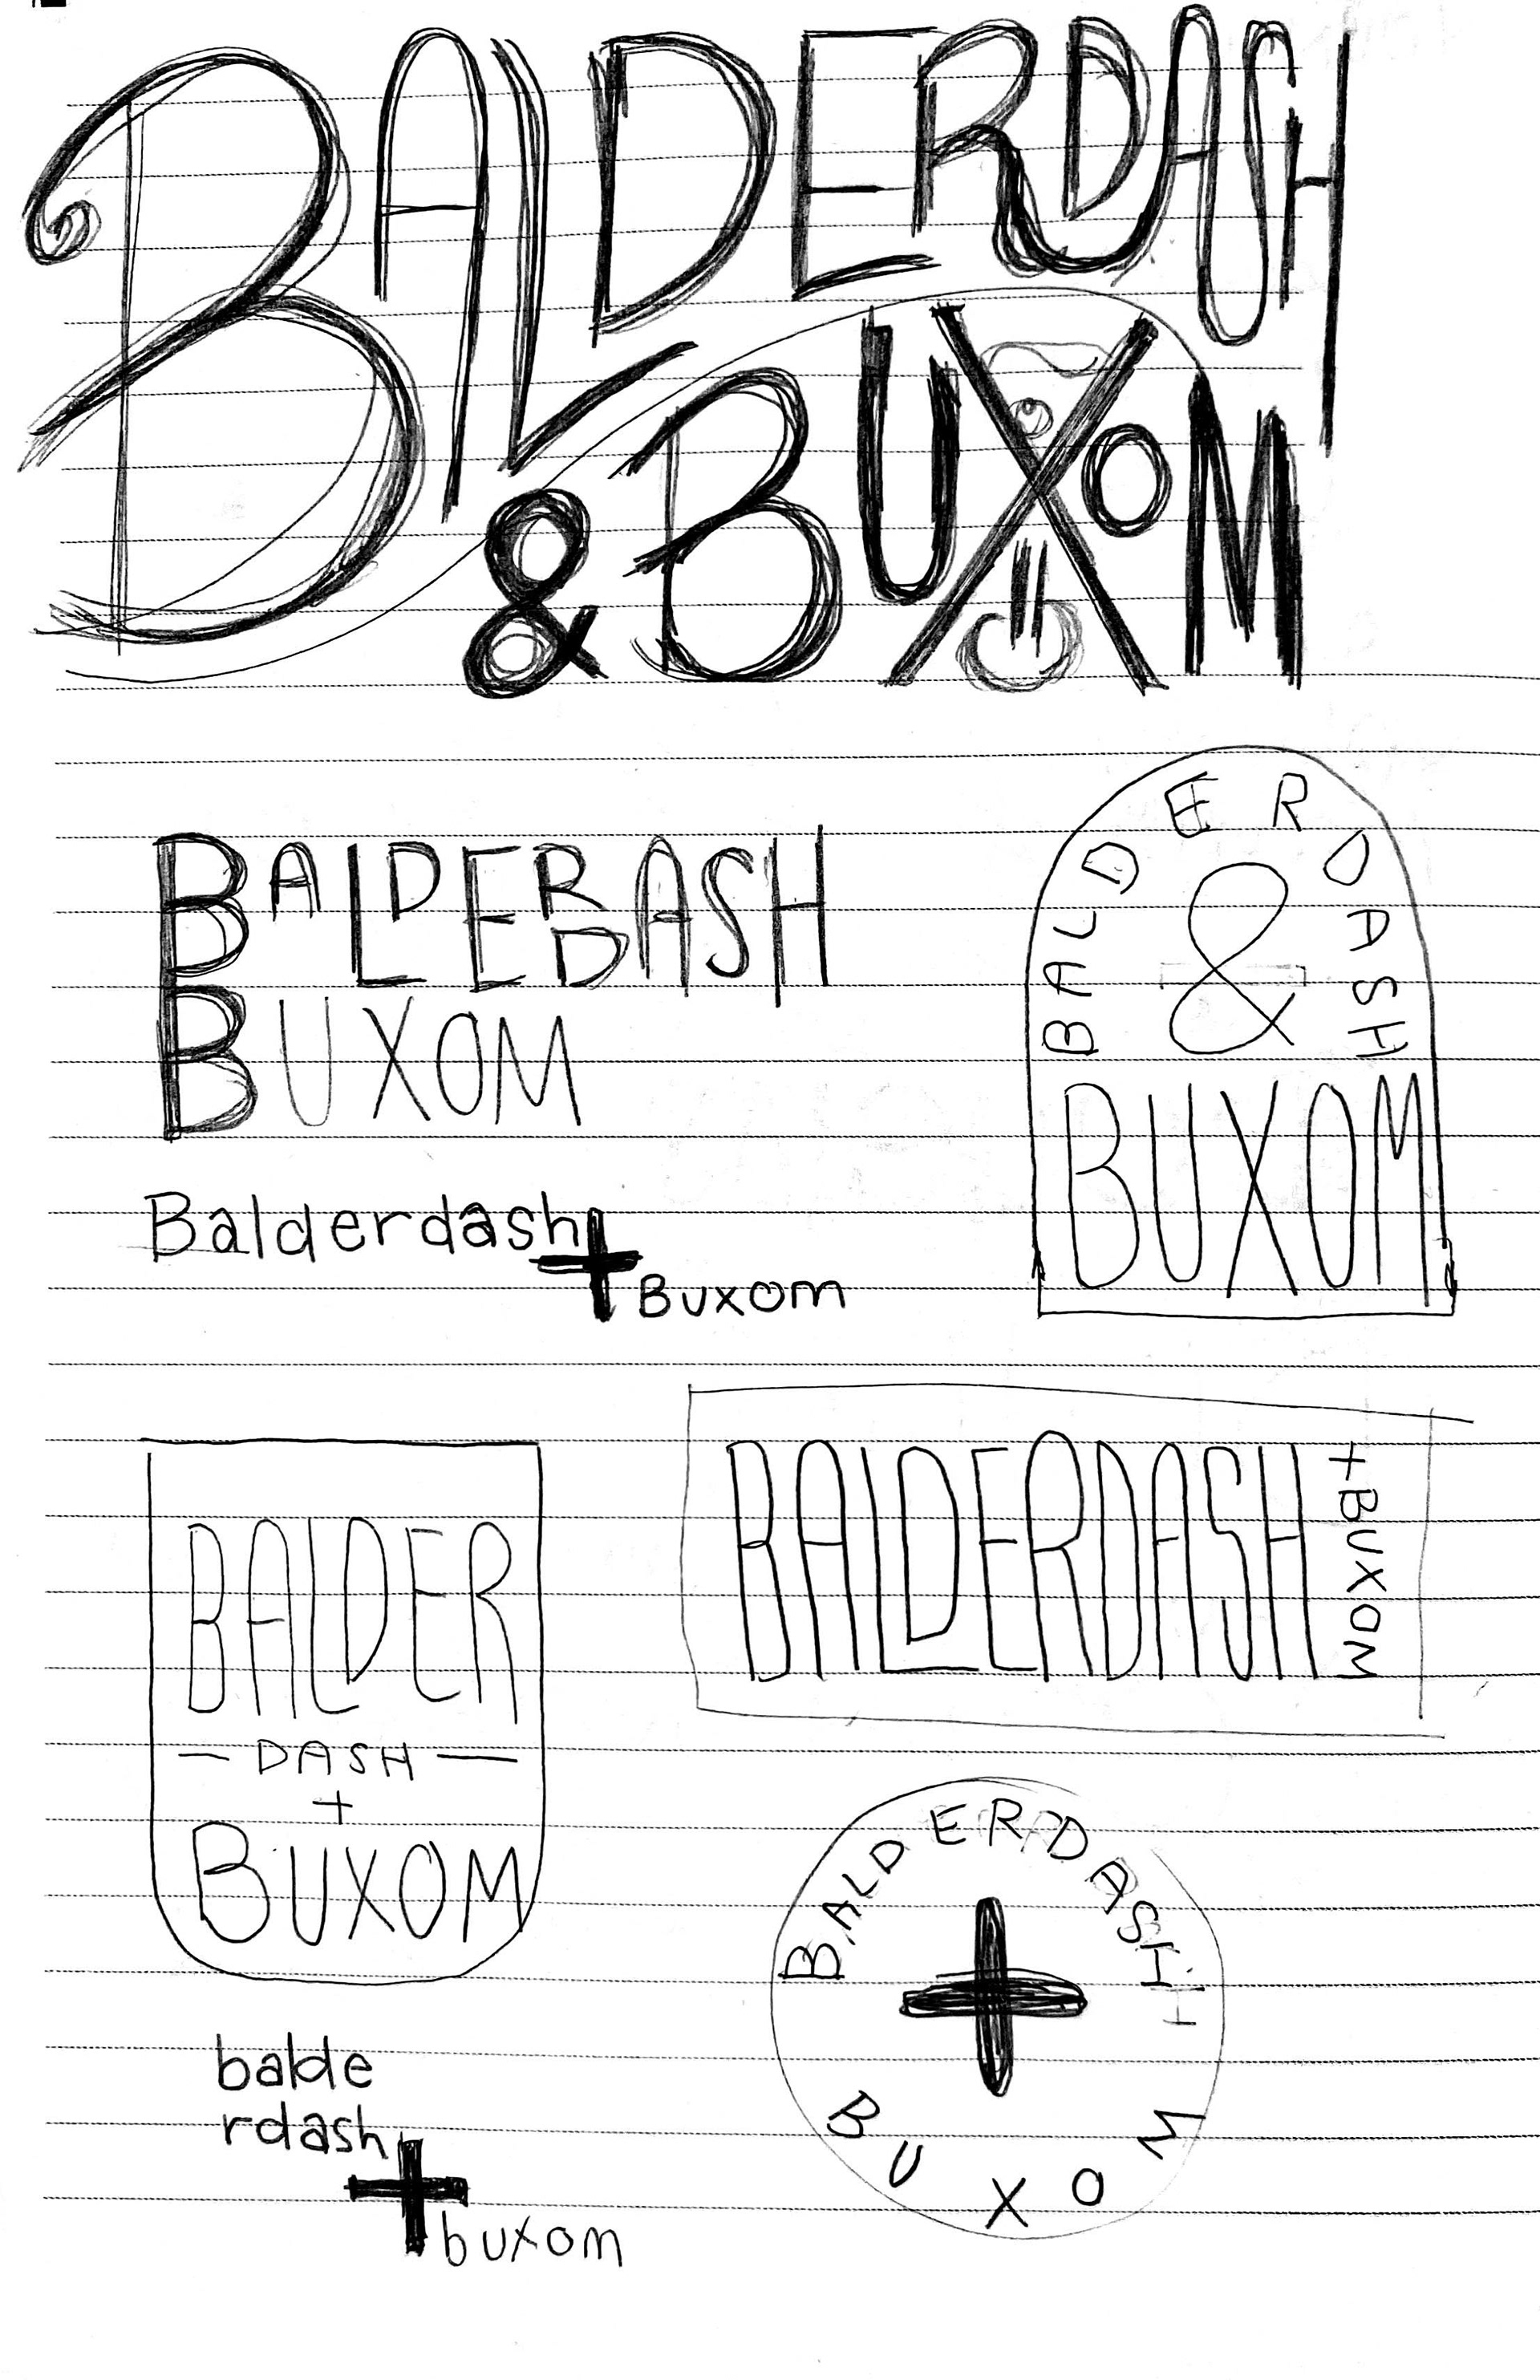 BALDERDASH
& BUXOM
BALDERDASH
BUXOM
BALDERDASH
&
BUXOM
Balderdash
+
Buxom
BALDERDASH
+BUXOM
BALDER
— DASH —
+
BUXOM
BALDERDASH
+
BUXOM
balde
rdash
+
buxom